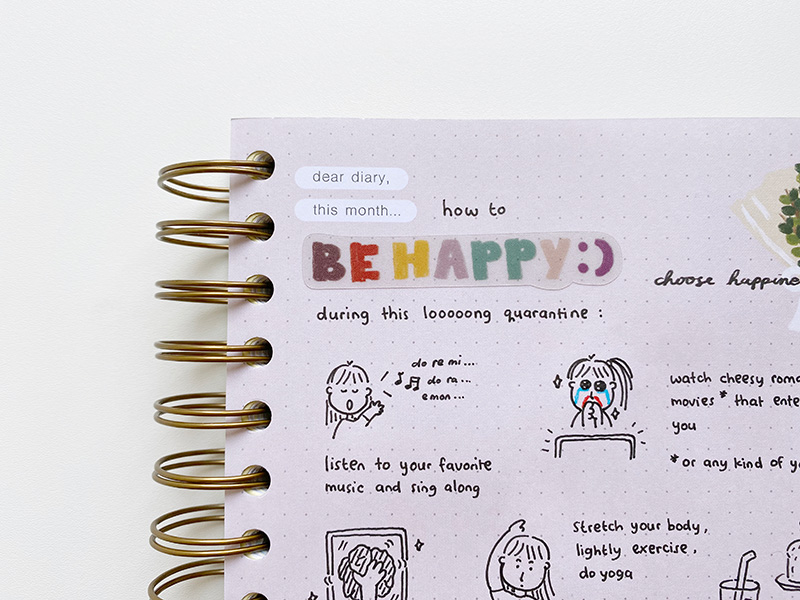 dear diary,
this month... how to
BE HAPPY:)
choose
during this looooong quarantine :
do re mi...
do ra...
emon...
watch cheesy
movies* that
you
*or any kind of
listen to your favorite
music and sing along
Stretch your body,
lightly exercise,
do yoga